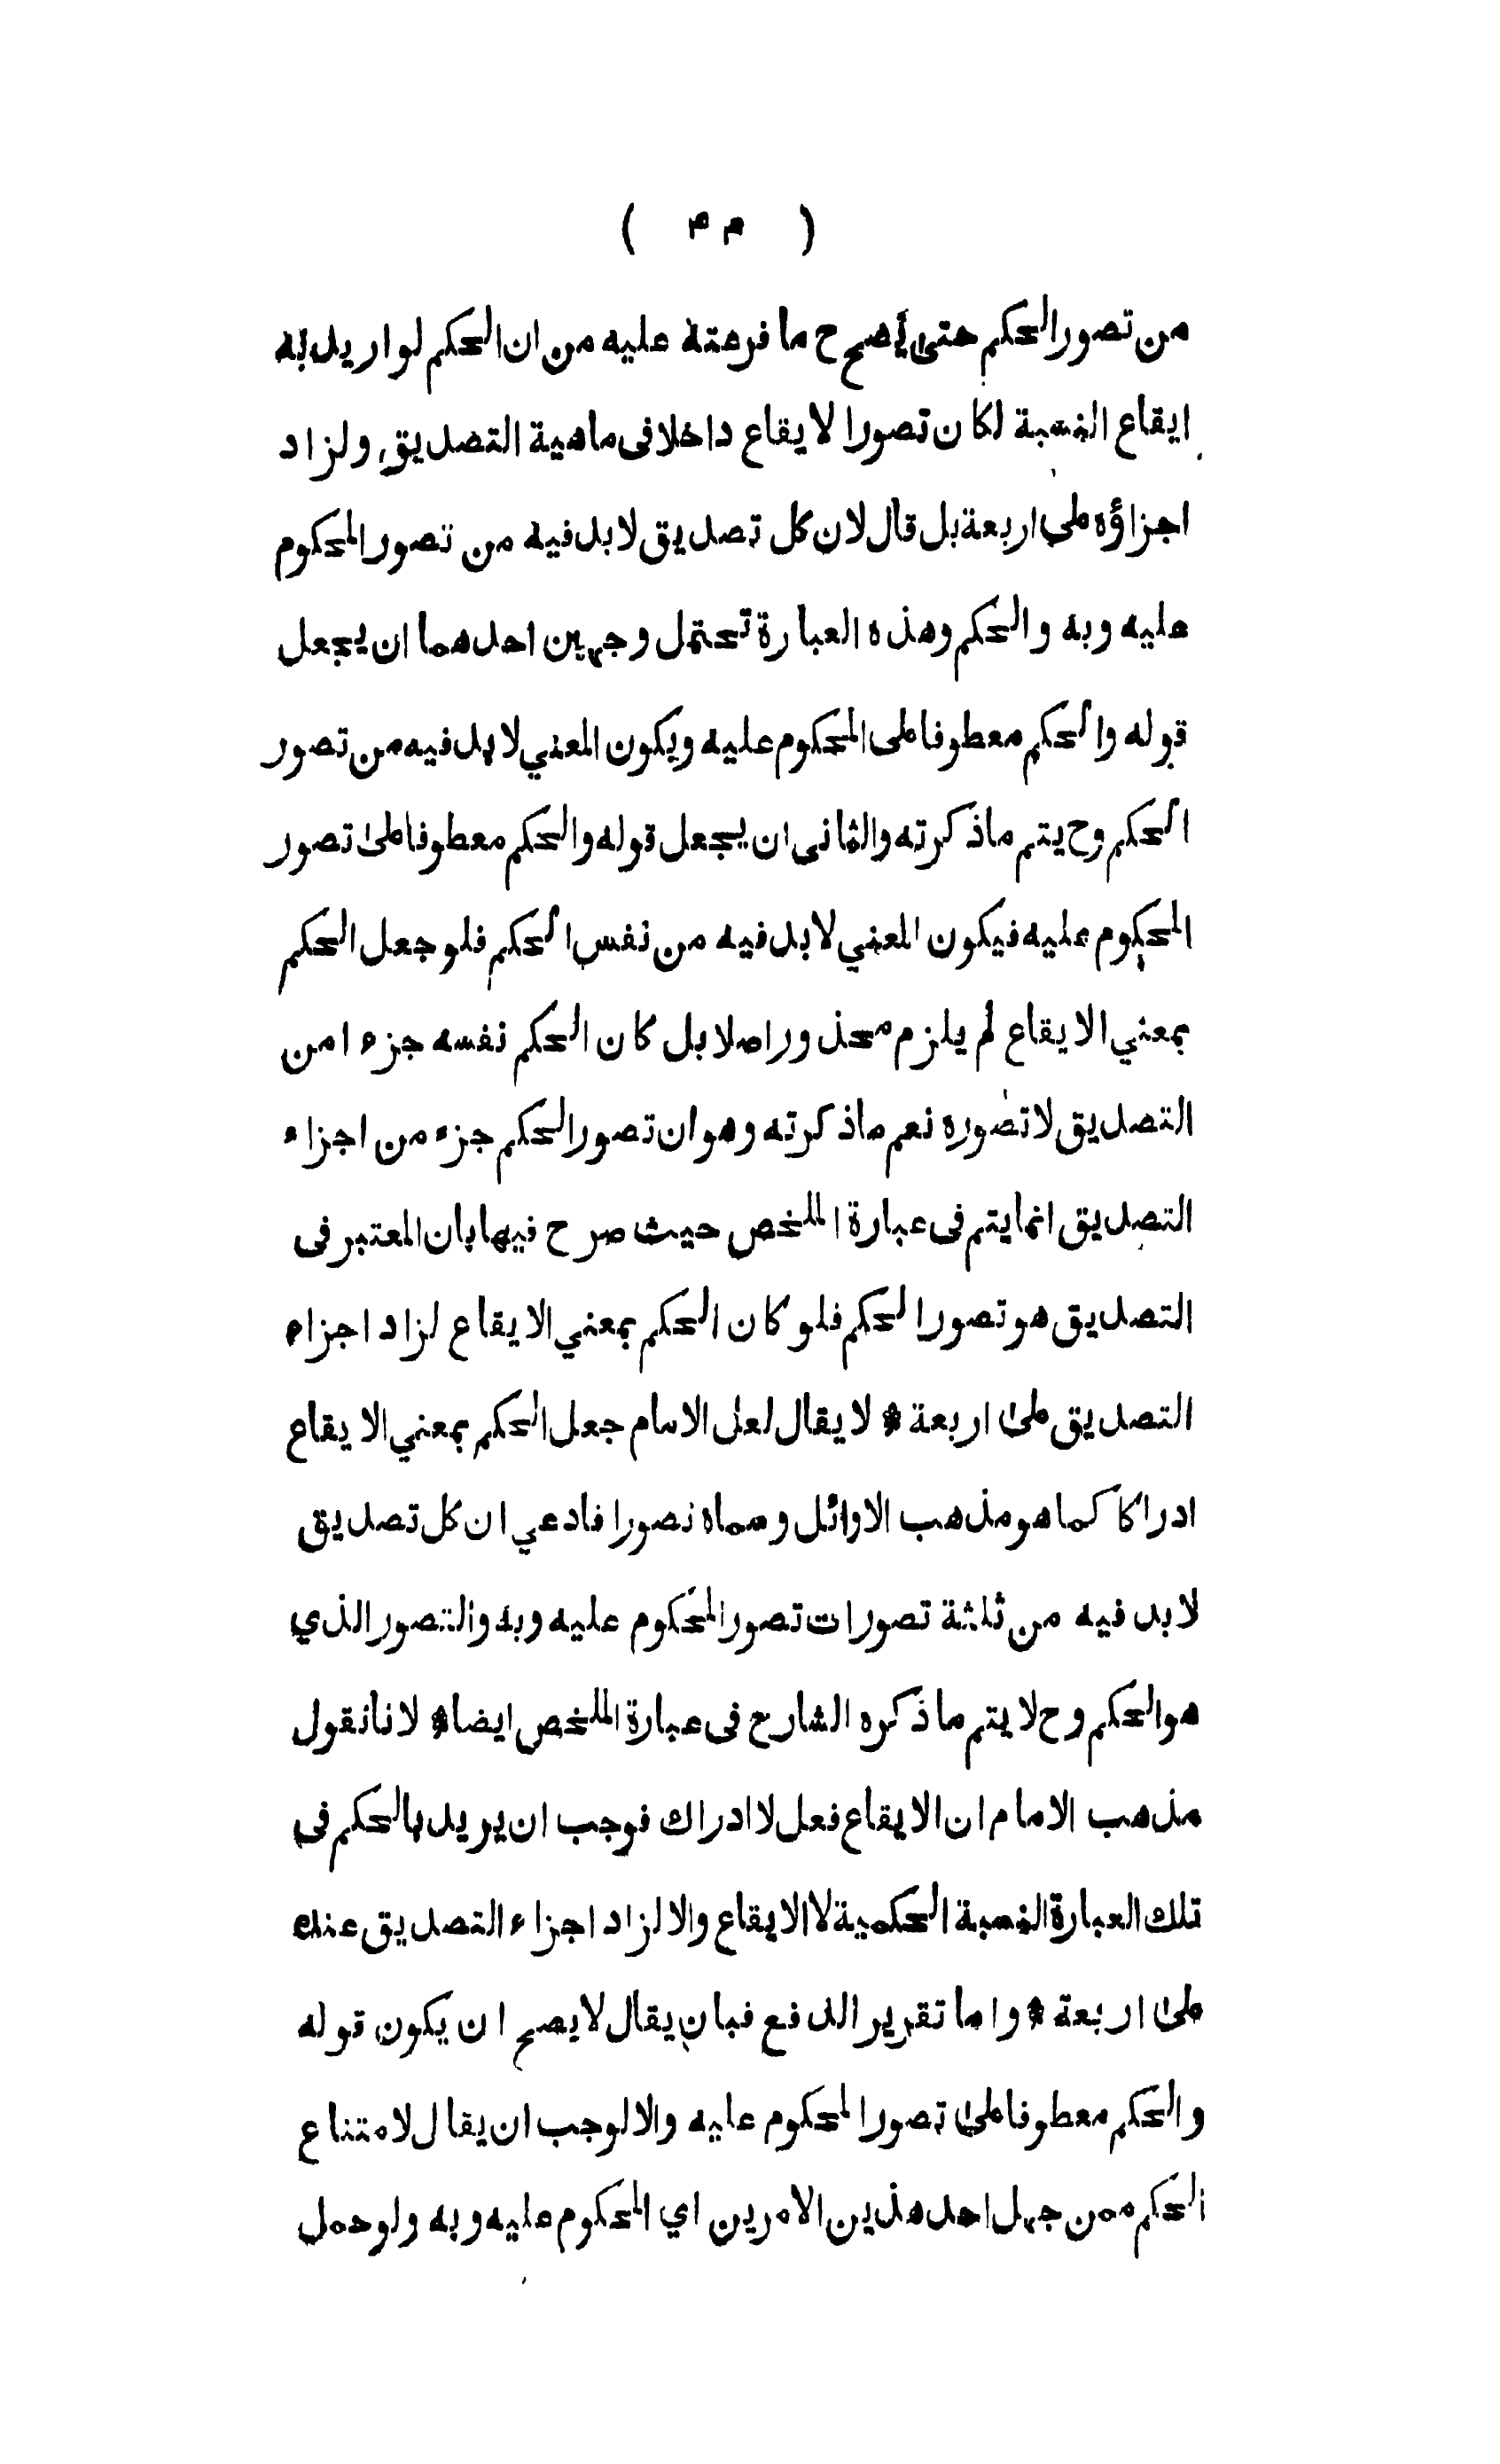 من تصور الحكم حتى يصح ح ما فرعته عليه من ان الحكم لو اريد به
ايقاع النسبة لكان تصور الايقاع داخلا فى ماهية التصديق ولزاد
اجزاؤه على اربعة بل قال لان كل تصديق لابد فيه من تصور المحكوم
عليه وبه والحكم وهذه العبارة تحتمل وجهين احدهما ان يجعل
قوله والحكم معطوفا على المحكوم عليه ويكون المعني لابد فيه من تصور
الحكم وح يتم ماذكرته والثانى ان يجعل قوله والحكم معطوفا على تصور
المحكوم عليه فيكون المعني لابد فيه من نفس الحكم فلو جعل الحكم
بمعني الايقاع لم يلزم محذور اصلا بل كان الحكم نفسه جزء امن
التصديق لا تصوره نعم ماذكرته وهو ان تصور الحكم جزء من اجزاء
التصديق انما يتم فى عبارة الملخص حيث صرح فيها بان المعتبر فى
التصديق هو تصور الحكم فلو كان الحكم بمعني الايقاع لزاد اجزاء
التصديق على اربعة * لا يقال لعل الامام جعل الحكم بمعني الايقاع
ادراكا كما هو مذهب الاوائل وسماه تصورا فادعي ان كل تصديق
لابد فيه من ثلثة تصورات تصور المحكوم عليه وبه والتصور الذي
هو الحكم وح لا يتم ما ذكره الشارح فى عبارة الملخص ايضا * لانا نقول
مذهب الامام ان الايقاع فعل لا ادراك فوجب ان يريد بالحكم فى
تلك العبارة النسبة الحكمية لا الايقاع والا لزاد اجزاء التصديق عنده
على اربعة * واما تقرير الدفع فبان يقال لا يصح ان يكون قوله
والحكم معطوفا على تصور المحكوم عليه والا لوجب ان يقال لامتناع
الحكم ممن جهل احد هذين الامرين اي المحكوم عليه وبه ولو حمل